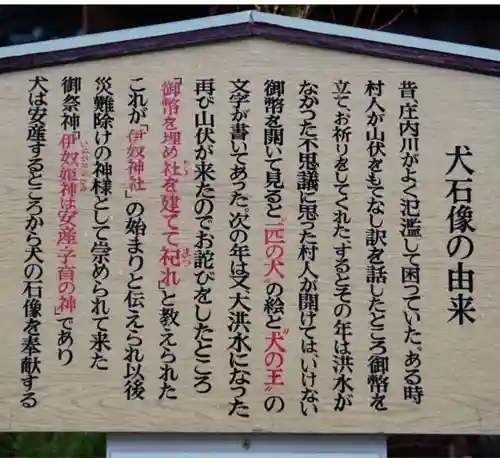 犬石像の由来
昔、庄内川がよく氾濫して困っていた。ある時
村人が山伏をもてなし訳を話したところ御幣を
立て、お祈りをしてくれた。するとその年は洪水が
なかった不思議に思った村人が開けてはいけない
御幣を開いて見ると〝一匹の犬〟の絵と〝犬の王〟の
文字が書いてあった。次の年は又、大洪水になった
再び山伏が来たのでお詫びをしたところ
「御幣を埋め社を建てて祀れ」と教えられた
これが「伊奴神社」の始まりと伝えられ以後
災難除けの神様として崇められて来た
御祭神「伊奴姫神は安産・子育の神」であり
犬は安産するところから犬の石像を奉献する